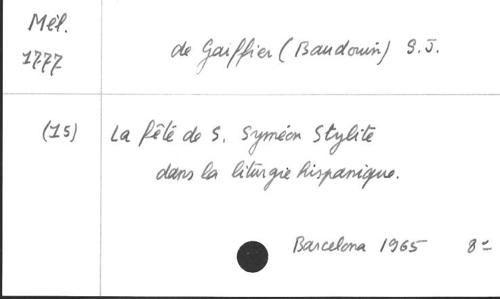 Mél.
1777
de Gaiffier (Baudouin) S.J.
(15)
La fête de S. Syméon Stylite
dans la liturgie hispanique.
Barcelona 1965 8º